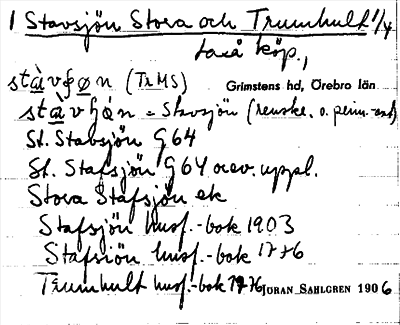 1 Stavsjön Stora och Trumhult 1/4
två köp.,
stàvʃøn (TrMS) Grimstens hd, Örebro län
stàvʃøn = Stavsjön (
St. Stavsjön G 64
St. Stafsjön G 64 orev. uppl.
Stora Stafsjön ek
Stafsjön husf.-bok 1903
Stafsiön husf.-bok 1776
Trumhult husf.-bok 1776 JÖRAN SAHLGREN 1906